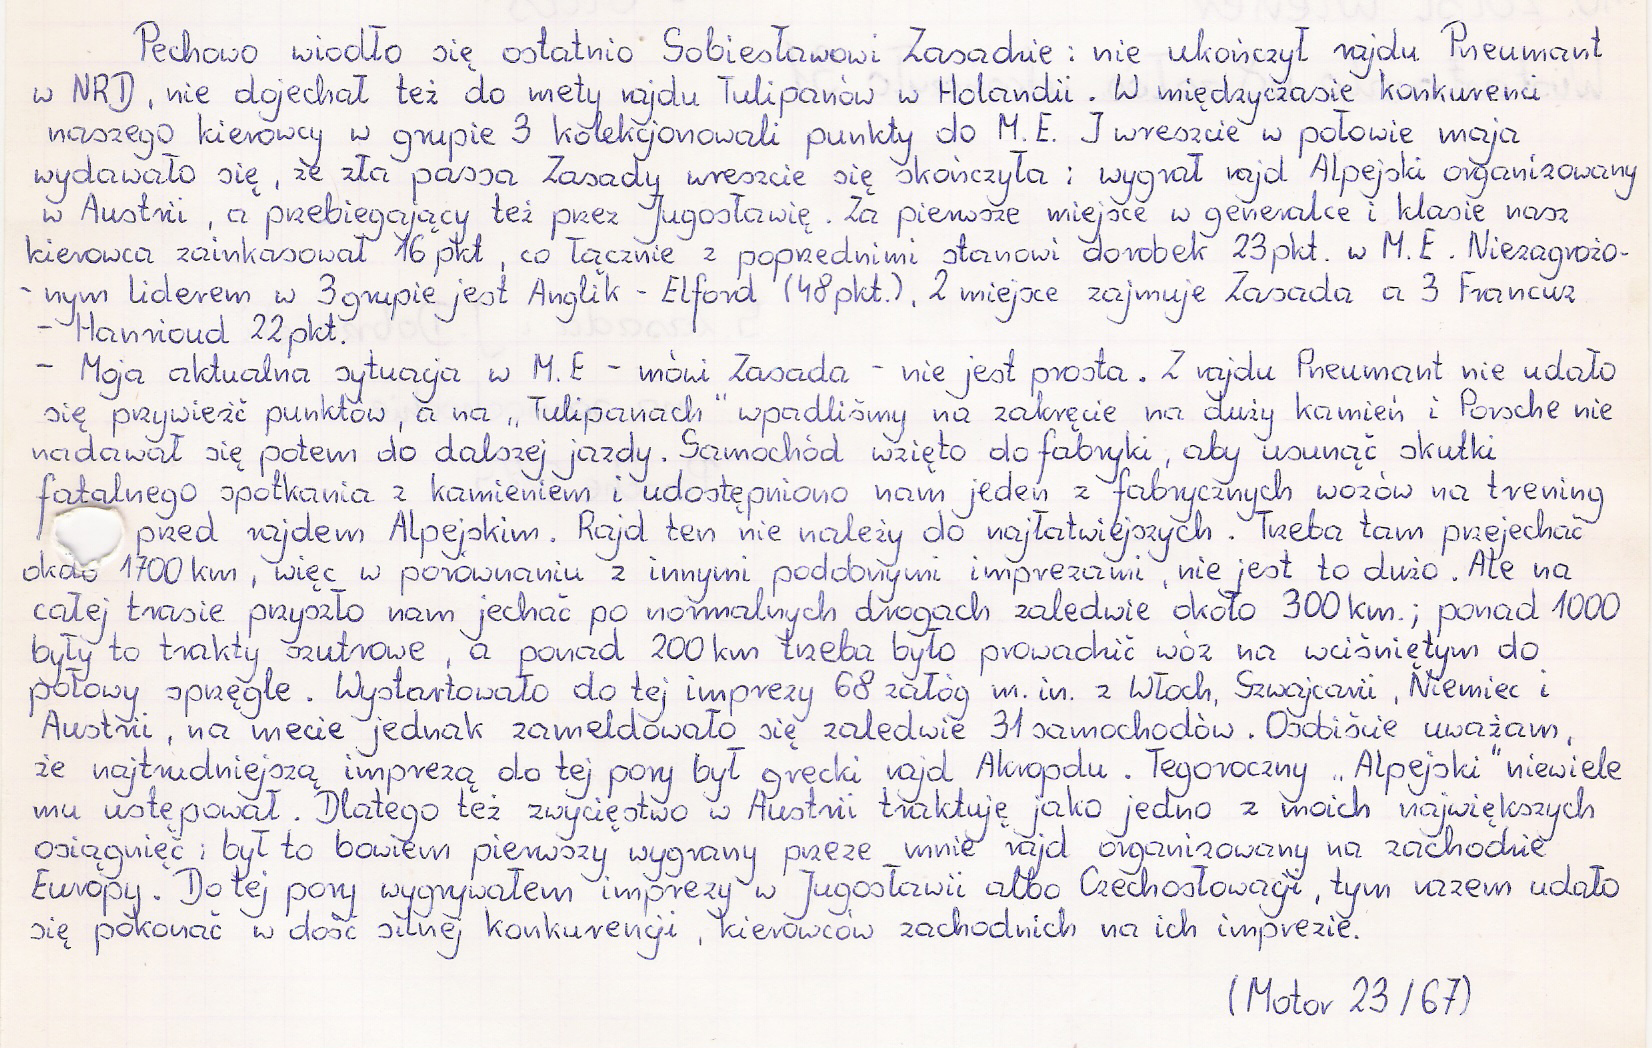 Pechowo wiodło się ostatnio Sobiesławowi Zasadzie : nie ukończył rajdu Pneumant
w NRD, nie dojechał też do mety rajdu Tulipanów w Holandii. W międzyczasie konkurenci
naszego kierowcy w grupie 3 kolekcjonowali punkty do M.E. I wreszcie w połowie maja
wydawało się, że zła passa Zasady wreszcie się skończyła : wygrał rajd Alpejski organizowany
w Austrii, a przebiegający też przez Jugosławię. Za pierwsze miejsce w generalce i klasie nasz
kierowca zainkasował 16 pkt, co łącznie z poprzednimi stanowi dorobek 23 pkt. w M.E. Niezagrożo-
- nym liderem w 3 grupie jest Anglik - Elford (48 pkt.), 2 miejsce zajmuje Zasada a 3 Francuz
- Hanrioud 22 pkt.
- Moja aktualna sytuacja w M.E - mówi Zasada - nie jest prosta. Z rajdu Pneumant nie udało
się przywieźć punktów, a na „Tulipanach" wpadliśmy na zakręcie na duży kamień i Porsche nie
nadawał się potem do dalszej jazdy. Samochód wzięto do fabryki, aby usunąć skutki
fatalnego spotkania z kamieniem i udostępniono nam jeden z fabrycznych wozów na trening
przed rajdem Alpejskim. Rajd ten nie należy do najłatwiejszych. Trzeba tam przejechać
około 1700 km, więc w porównaniu z innymi podobnymi imprezami, nie jest to dużo. Ale na
całej trasie przyszło nam jechać po normalnych drogach zaledwie około 300 km.; ponad 1000
były to trakty szutrowe, a ponad 200 km trzeba było prowadzić wóz na wciśniętym do
połowy sprzęgle. Wystartowało do tej imprezy 68 załóg m.in. z Włoch, Szwajcarii, Niemiec i
Austrii, na mecie jednak zameldowało się zaledwie 31 samochodów. Osobiście uważam,
że najtrudniejszą imprezą do tej pory był grecki rajd Akropolu. Tegoroczny „Alpejski" niewiele
mu ustępował. Dlatego też zwycięstwo w Austrii traktuję jako jedno z moich największych
osiągnięć ; był to bowiem pierwszy wygrany przeze mnie rajd organizowany na zachodzie
Europy. Do tej pory wygrywałem imprezy w Jugosławii albo Czechosłowacji, tym razem udało
się pokonać w dość silnej konkurencji, kierowców zachodnich na ich imprezie.
(Motor 23/67)